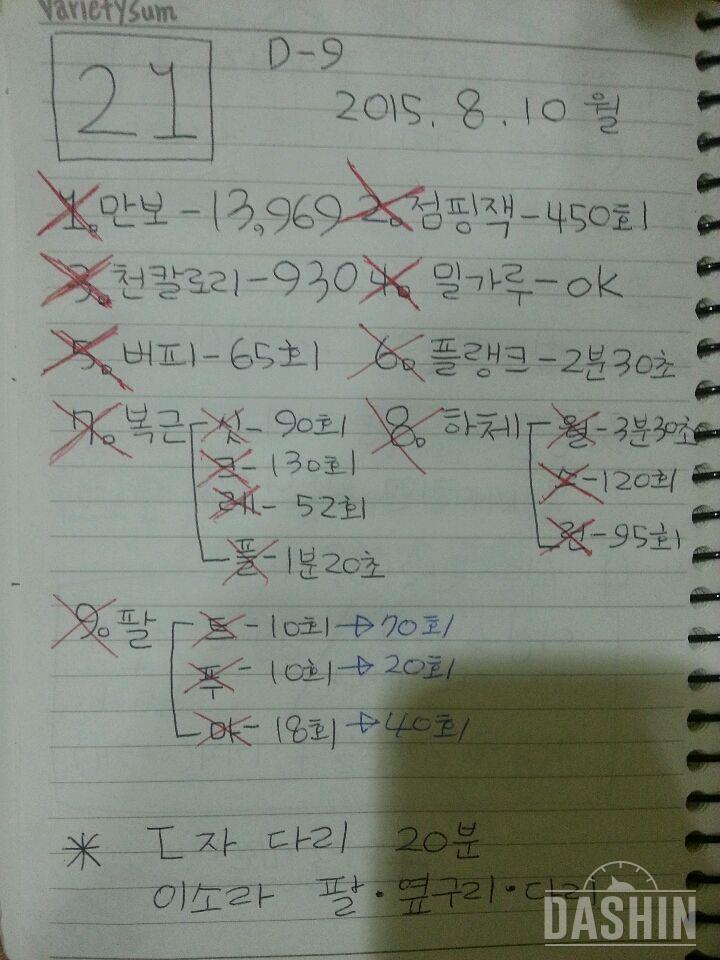 varietysum
21
D-9
2015. 8. 10 월
1. 만보 - 13,969 2. 점핑잭 - 450회
3. 천칼로리 - 930 4. 밀가루 - OK
5. 버피 - 65회 6. 플랭크 - 2분30초
7. 복근 - 싯 - 90회 8. 하체 - 월 - 3분30초
크 - 130회 스 - 120회
레 - 52회 런 - 95회
플 - 1분20초
9. 팔 - 트 - 10회 → 70회
푸 - 10회 → 20회
아 - 18회 → 40회
* ㄷ자 다리 20분
이소라 팔 · 옆구리 · 다리
DASHIN